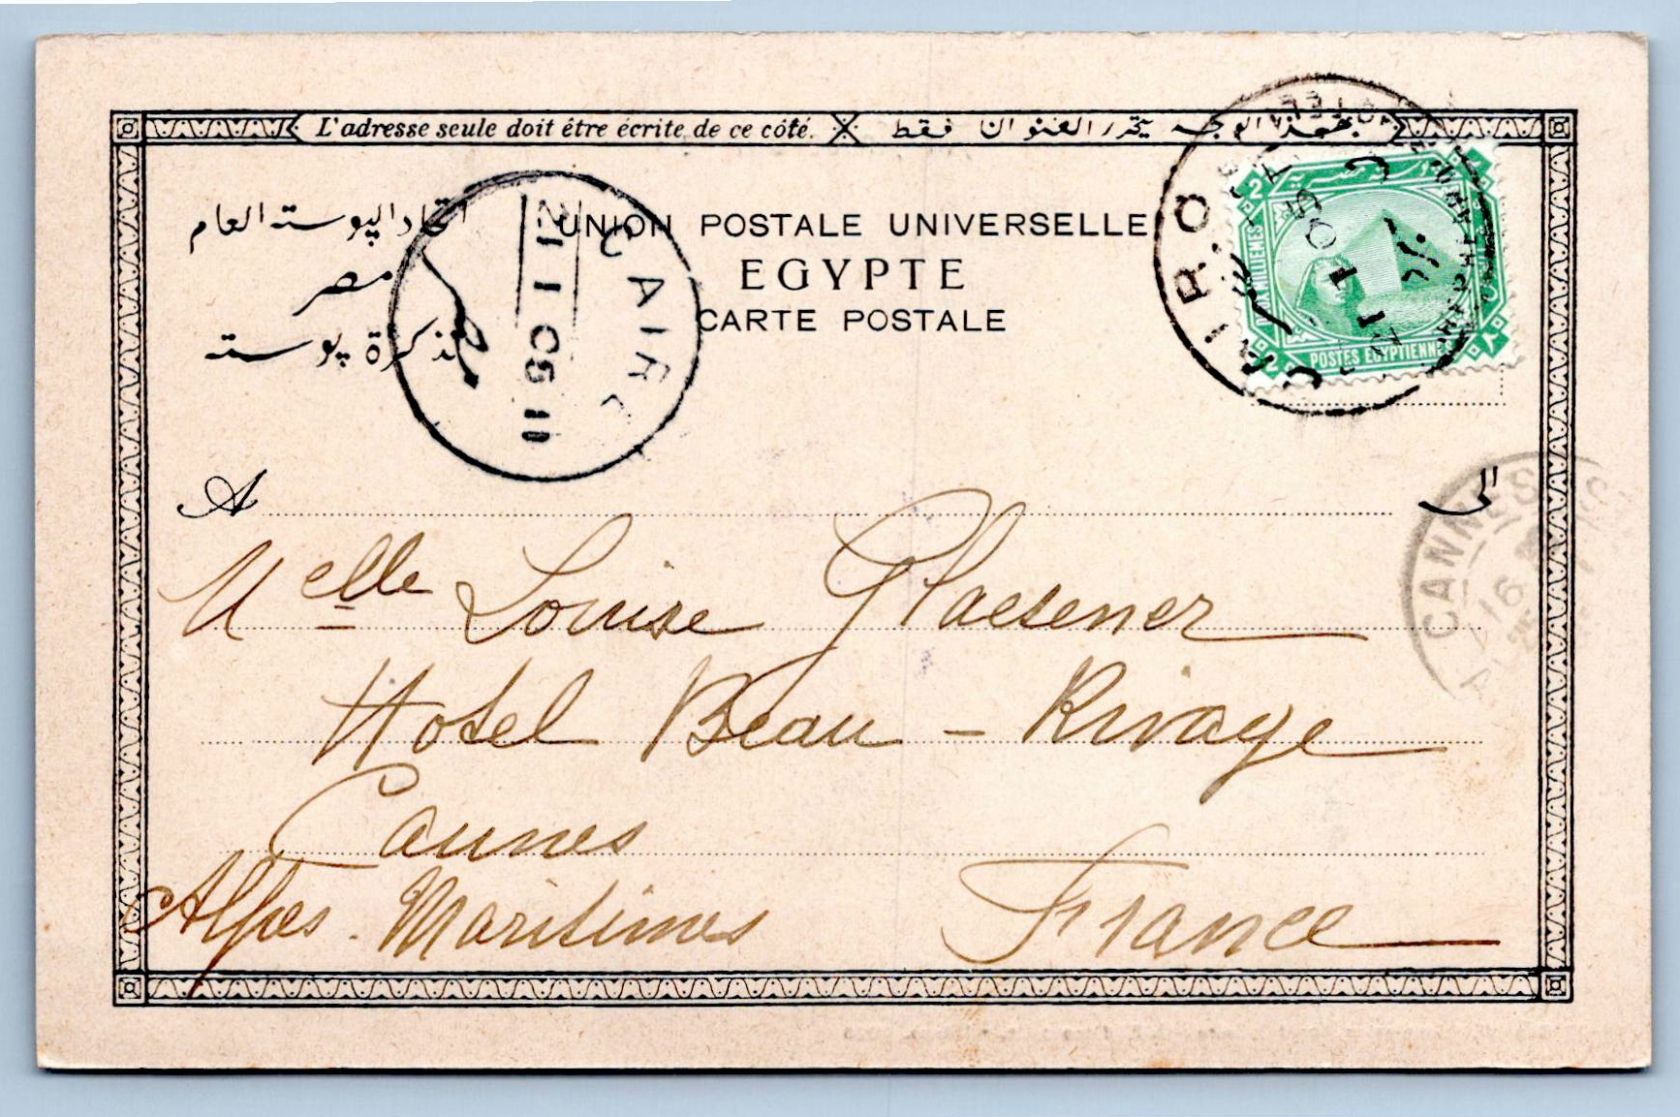 L'adresse seule doit être écrite de ce côté. بهذا الوجه يحرر العنوان فقط
اتحاد البوسته العام
UNION POSTALE UNIVERSELLE
مصر
EGYPTE
تذكرة بوسته
CARTE POSTALE
CAIRO
21 I 05
CAIRO
21 I 05
2
POSTES EGYPTIENNES
2
A
CANNES
Melle Louise Glaesener
Hotel Beau-Rivage
Cannes
Alpes. Maritimes France